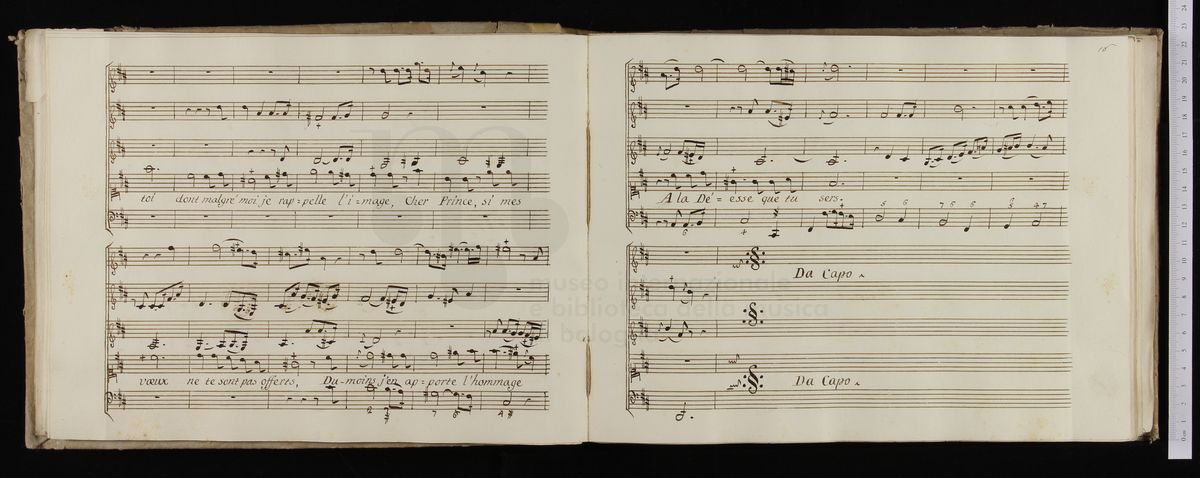 toi dont malgré moi je rap=pelle l'i=mage, Cher Prince, si mes
vœux ne te sont pas offerts, Du-moins j'en ap=porte l'hommage
16
A la Dé=esse que tu sers.
Da Capo
Da Capo
museo internazionale
e biblioteca della musica
di bologna